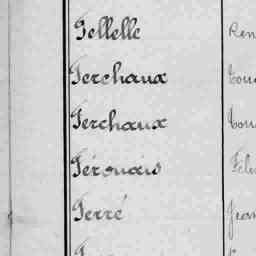 Fellelle Ren
Ferchaux Lou
Ferchaux Lou
Férouais Fél
Ferré Jean